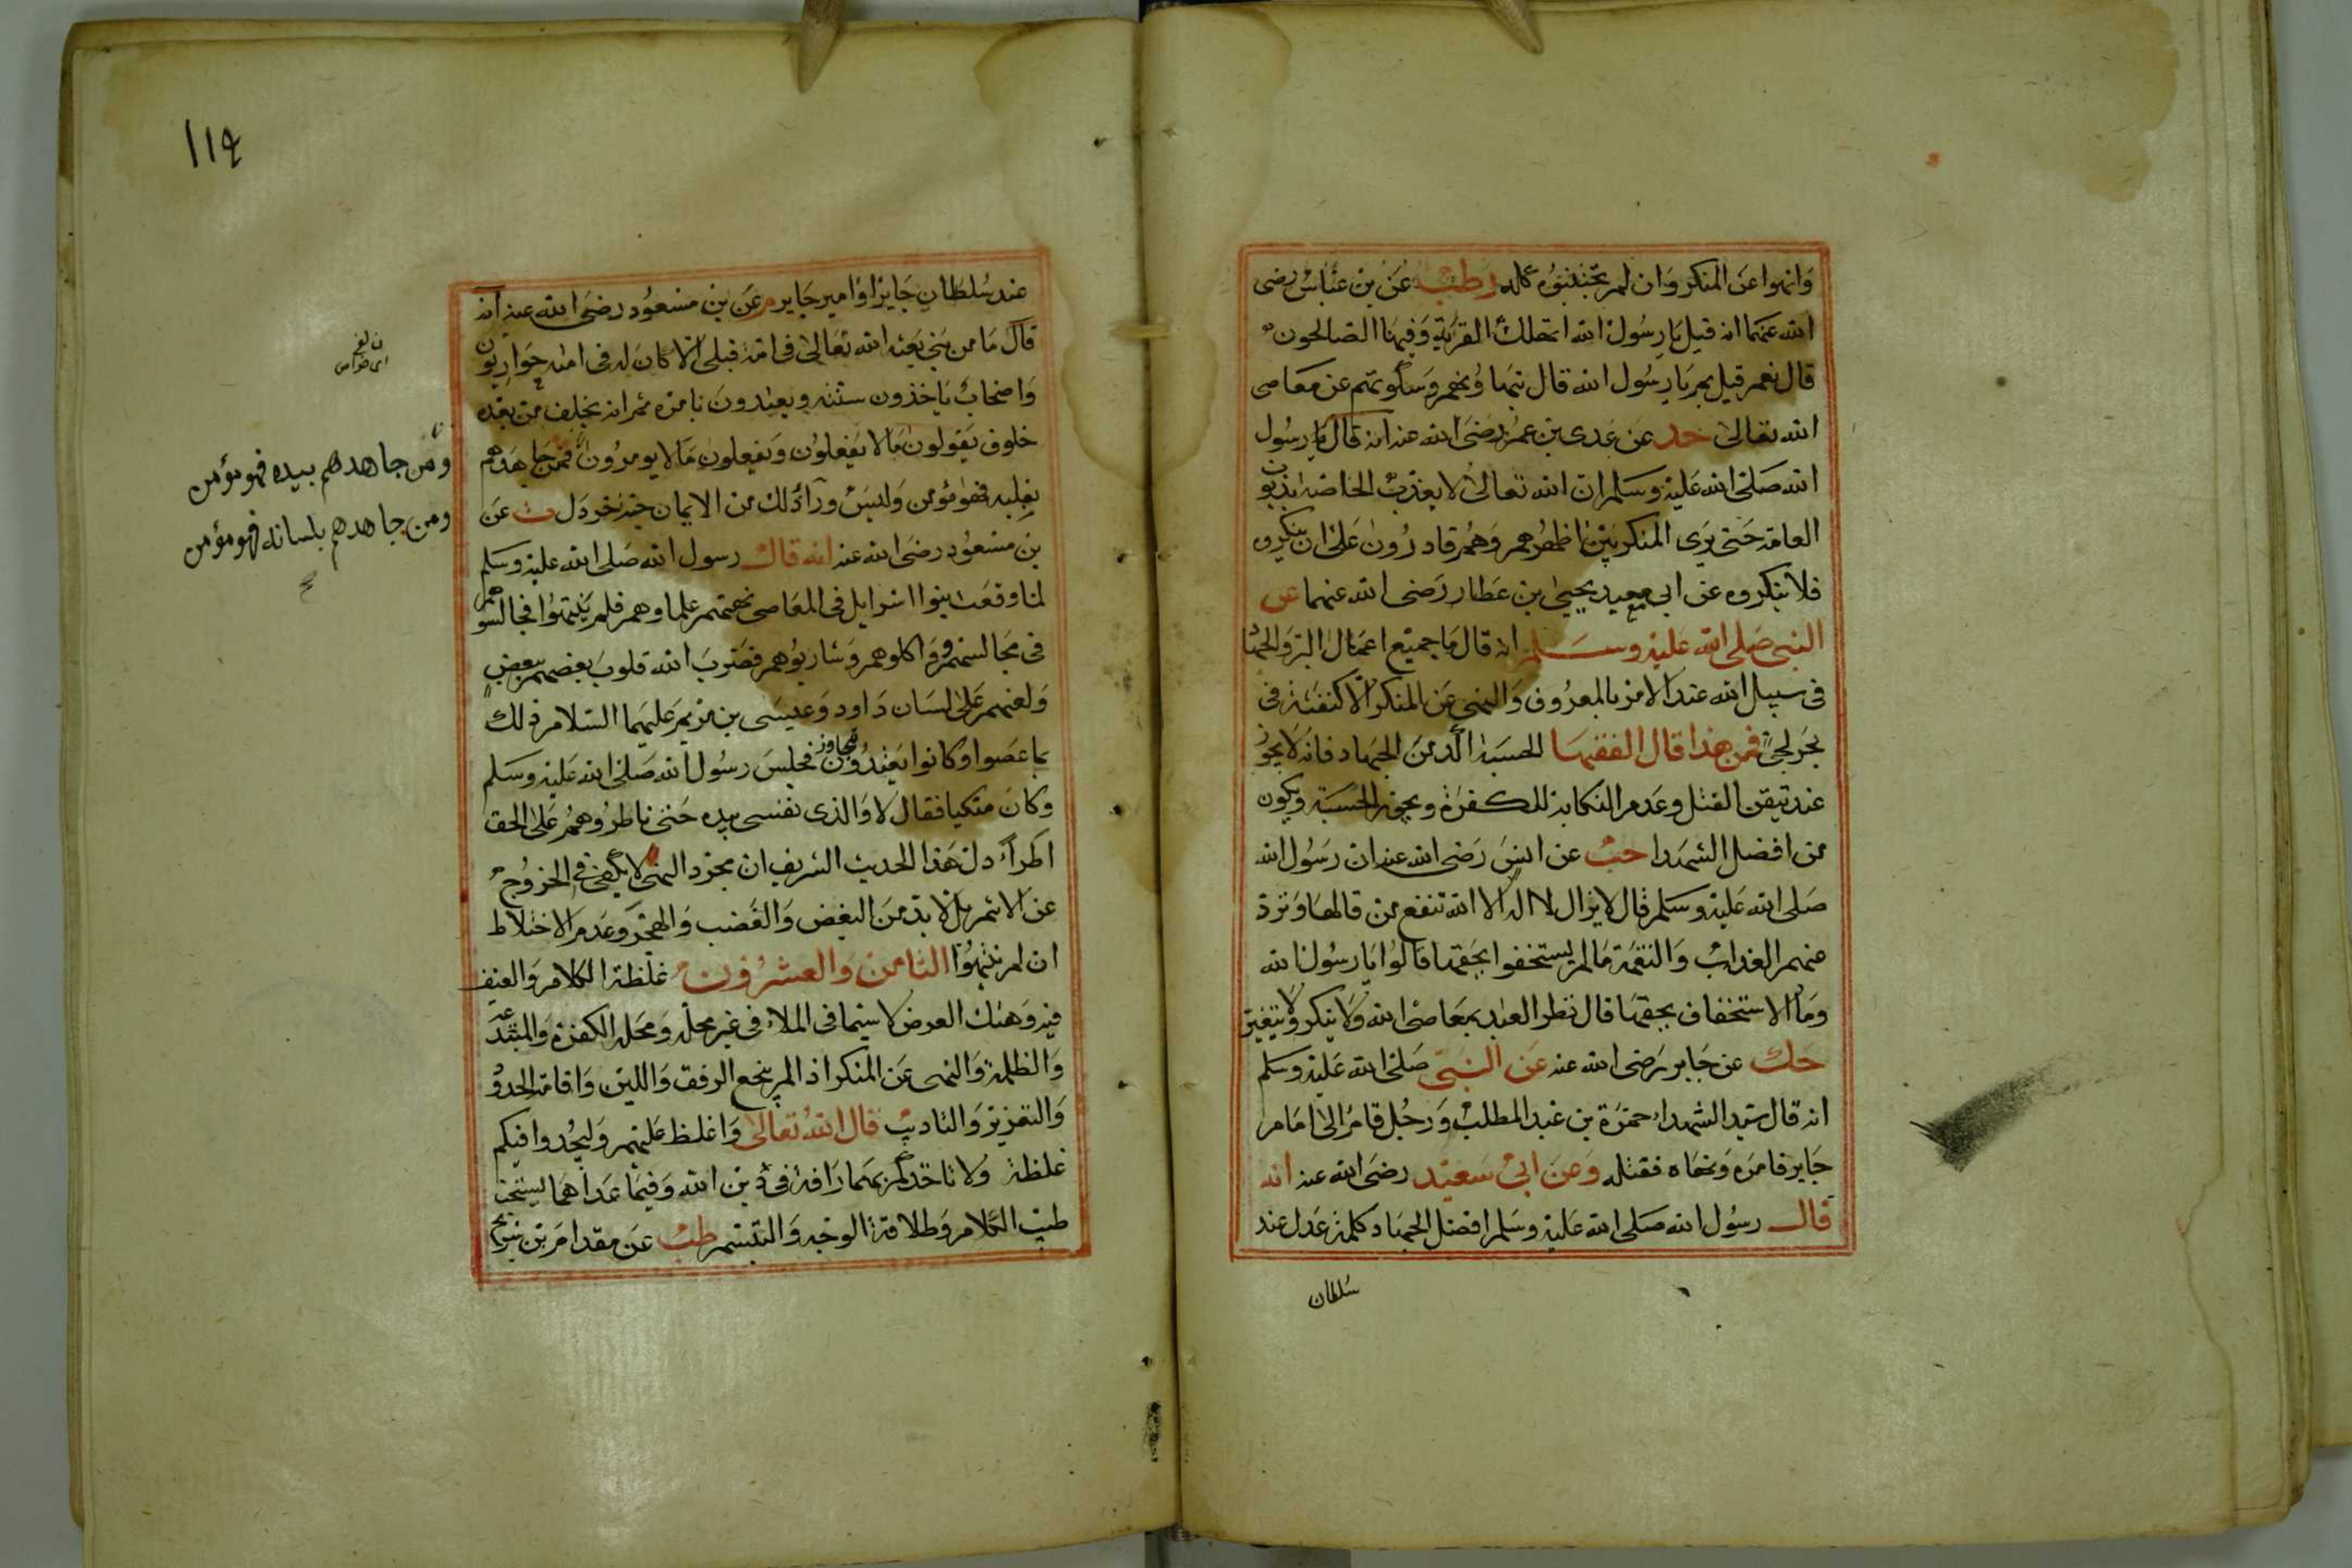 وانهوا عن المنكر وان لم تجتنبوه كله ز طب عن بن عباس رضى
الله عنهما انه قيل يا رسول الله اتهلك القرية وفيها الصالحون
قال نعم قيل بم يا رسول الله قال بتهاونهم وسكوتهم عن معاصى
الله تعالى حد عن عدى بن عميرة رضى الله عنه انه قال يا رسول
الله صلى الله عليه وسلم ان الله تعالى لا يعذب الخاصة بذنوب
العامة حتى يرى المنكر بين اظهرهم وهم قادرون على ان ينكروه
فلا ينكروه عن ابى سعيد يحيى بن عطار رضى الله عنهما عن
النبى صلى الله عليه وسلم انه قال ما جميع اعمال البر والجهاد
فى سبيل الله عند الامر بالمعروف والنهى عن المنكر الا كنفثة فى
بحر لجى فمن هذا قال الفقها الحسبة اكد من الجهاد فانه لا يجوز
عند تيقن القتل وعدم النكاية للكفرة ويجوز الحسبة ويكون
من افضل الشهدا حب عن انس رضى الله عنه ان رسول الله
صلى الله عليه وسلم قال لا يزال لا اله الا الله تنفع من قالها وترد
عنهم العذاب والنقمة ما لم يستخفوا بحقها قالوا يا رسول الله
وما الاستخفاف بحقها قال تظر العبد بمعاصى الله ولا ينكر ولا يتغير
حك عن جابر رضى الله عنه عن النبى صلى الله عليه وسلم
انه قال سيد الشهداء حمزة بن عبد المطلب ورجل قام الى امام
جاير فامره ونهاه فقتله وعن ابى سعيد رضى الله عنه انه
قال رسول الله صلى الله عليه وسلم افضل الجهاد كلمة عدل عند
سلطان
١١٤
عند سلطان جايز او امير جاير م عن بن مسعود رضى الله عنه انه
قال ما من نبى بعثه الله تعالى فى امة قبلى الا كان له فى امته حواريون
واصحاب ياخذون سنته ويعتدون بامره ثم انه يخلف من بعده
خلوف يقولون ما لا يفعلون ويفعلون ما لا يومرون فمن جاهدهم
بقلبه فهو مؤمن وليس وراء ذلك من الايمان حبة خردل ت عن
بن مسعود رضى الله عنه انه قال رسول الله صلى الله عليه وسلم
لما وقعت بنوا اسرايل فى المعاصى نهتهم علماوهم فلم ينتهوا فجالسوهم
فى مجالسهم وواكلوهم وشاربوهم فضرب الله قلوب بعضهم ببعض
ولعنهم على لسان داود وعيسى بن مريم عليهما السلام ذلك
بما عصوا وكانوا يعتدون فجلس رسول الله صلى الله عليه وسلم
وكان متكيا فقال لا والذى نفسى بيده حتى تاطروهم على الحق
اطراً دل هذا الحديث الشريف ان مجرد النهى لا يكفى فى الخروج
عن الاثم بل لا بد من البغض والغضب والهجر وعدم الاختلاط
ان لم ينتهوا الثامن والعشرون غلظة الكلام والعنف
فيه وهتك العرض لا سيما فى الملاء فى غير محله ومحله الكفرة والمبتدعة
والظلمة والنهى عن المنكر اذ المر ينجع الرفق واللين واقامة الحدود
والتعزيز والتاديب قال الله تعالى واغلظ عليهم وليجدوا فيكم
غلظة ولا تاخذكم بهما رافة فى دين الله وفيما عداهما يستحب
طيب الكلام وطلاقة الوجه والتبسم طب عن مقدام بن شريح
ومن جاهدهم بيده فهو مؤمن
ومن جاهدهم بلسانه فهو مؤمن